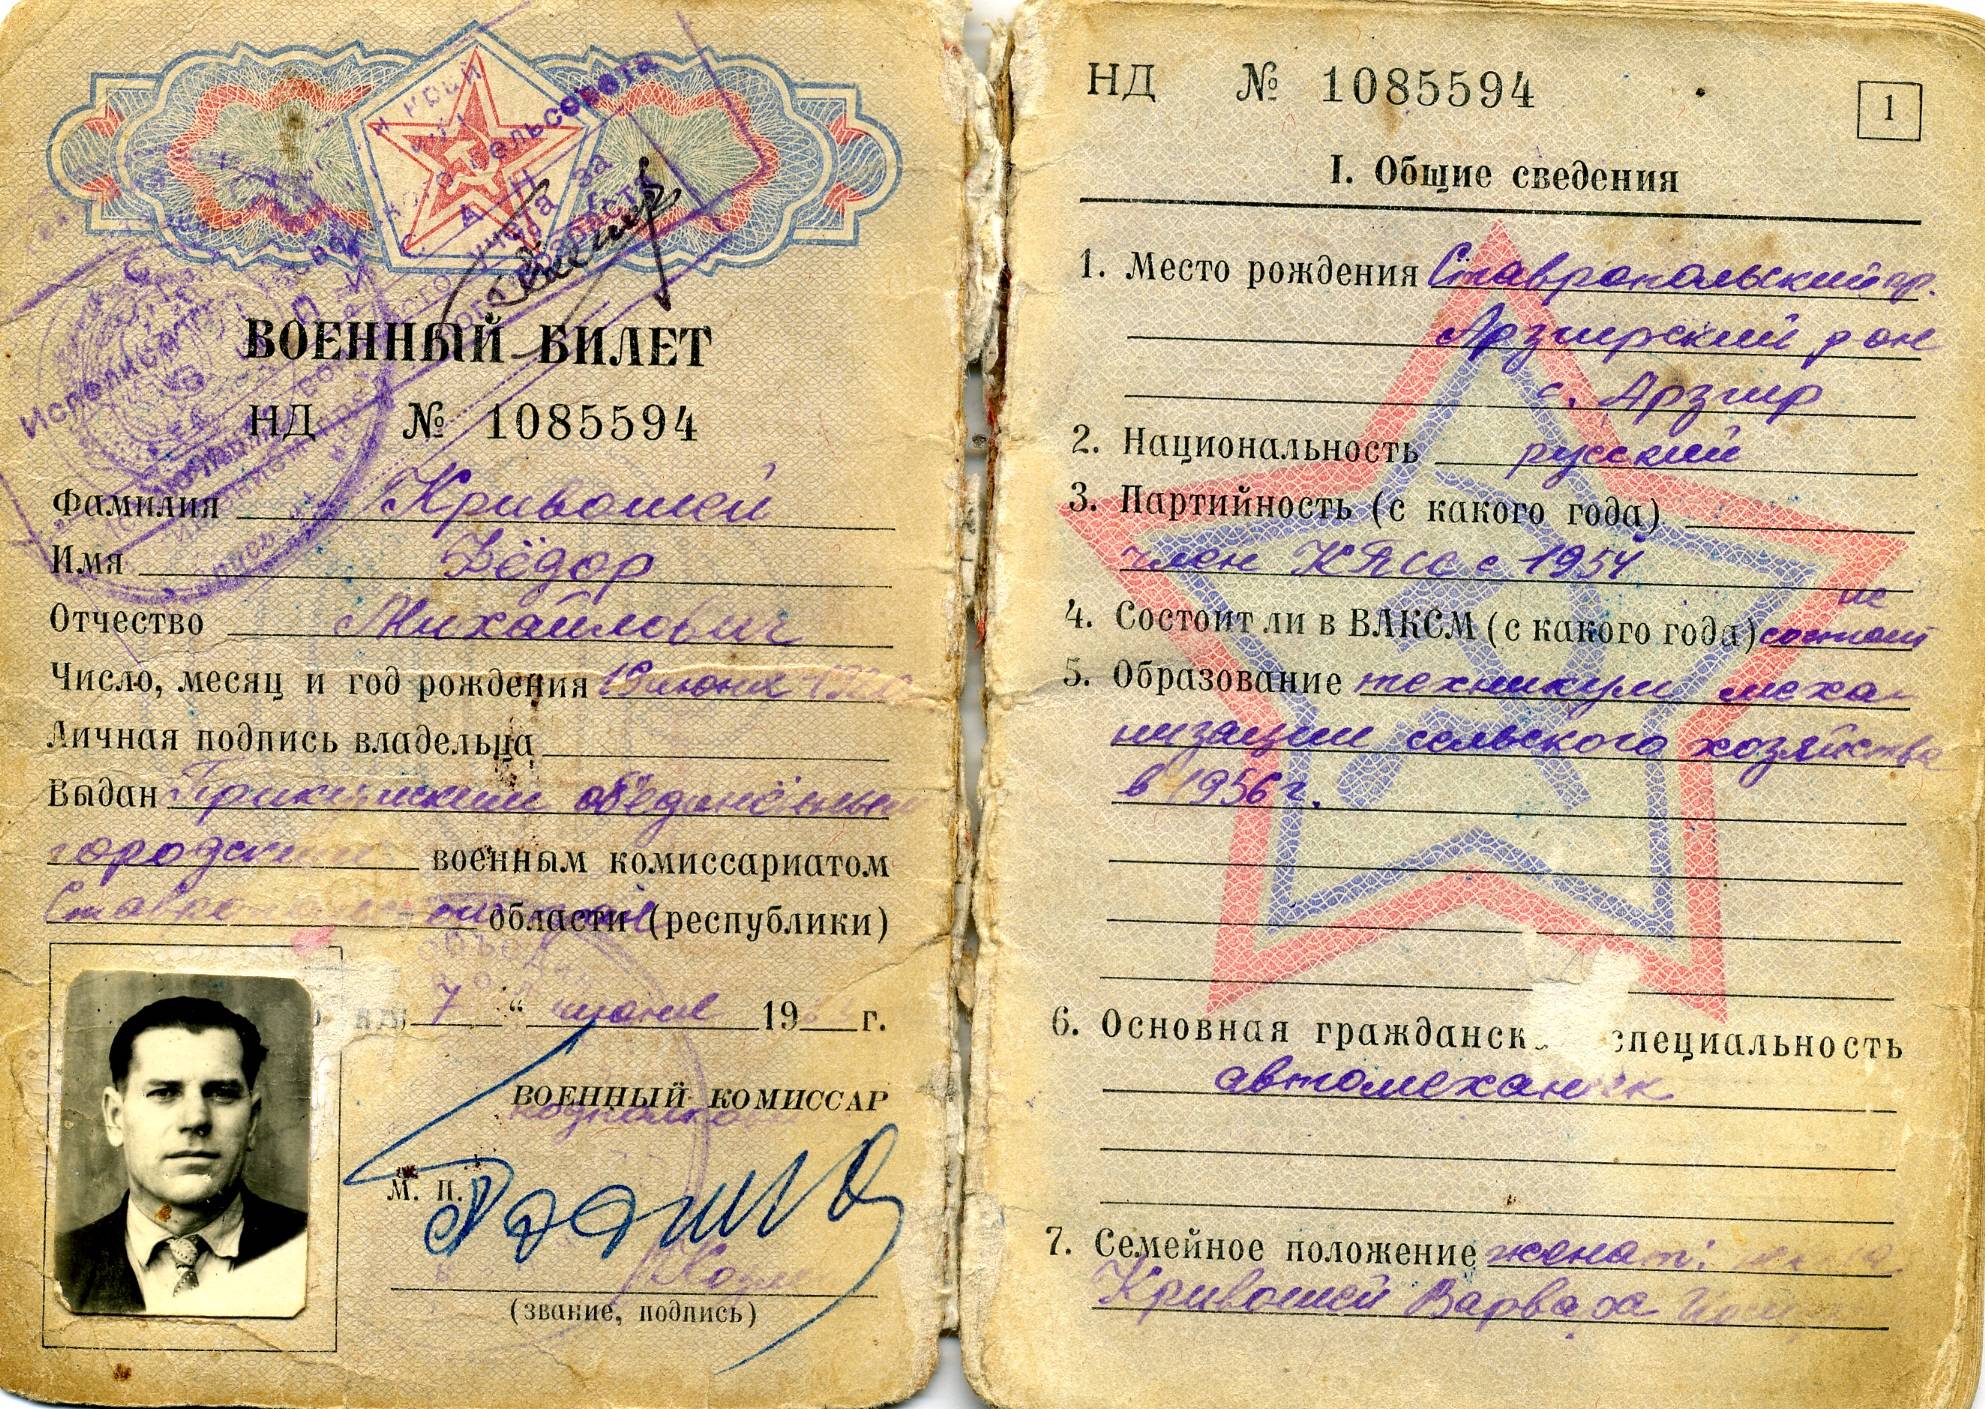 ВОЕННЫЙ БИЛЕТ
НД № 1085594
Фамилия Кривошей
Имя Фёдор
Отчество Михайлович
Число, месяц и год рождения 19 июня
Личная подпись владельца
Выдан объединённым
городским военным комиссариатом
области (республики)
7 “ 19 г.
ВОЕННЫЙ КОМИССАР
М. П.
(звание, подпись)
НД № 1085594
1
I. Общие сведения
1. Место рождения Ставропольский кр.
Арзгирский р он
с. Арзгир
2. Национальность русский
3. Партийность (с какого года)
член КПСС с 1954
4. Состоит ли в ВЛКСМ (с какого года) не
состоит
5. Образование техникум меха-
низации сельского хозяйства
в 1956 г.
6. Основная гражданск специальность
автомеханик
7. Семейное положение женат:
Кривошей Варвара